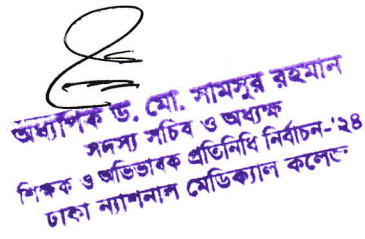 অধ্যাপক ড. মো. সামসুর রহমান
সদস্য সচিব ও অধ্যক্ষ
শিক্ষক ও অভিভাবক প্রতিনিধি নির্বাচন-'২৪
ঢাকা ন্যাশনাল মেডিক্যাল কলেজ